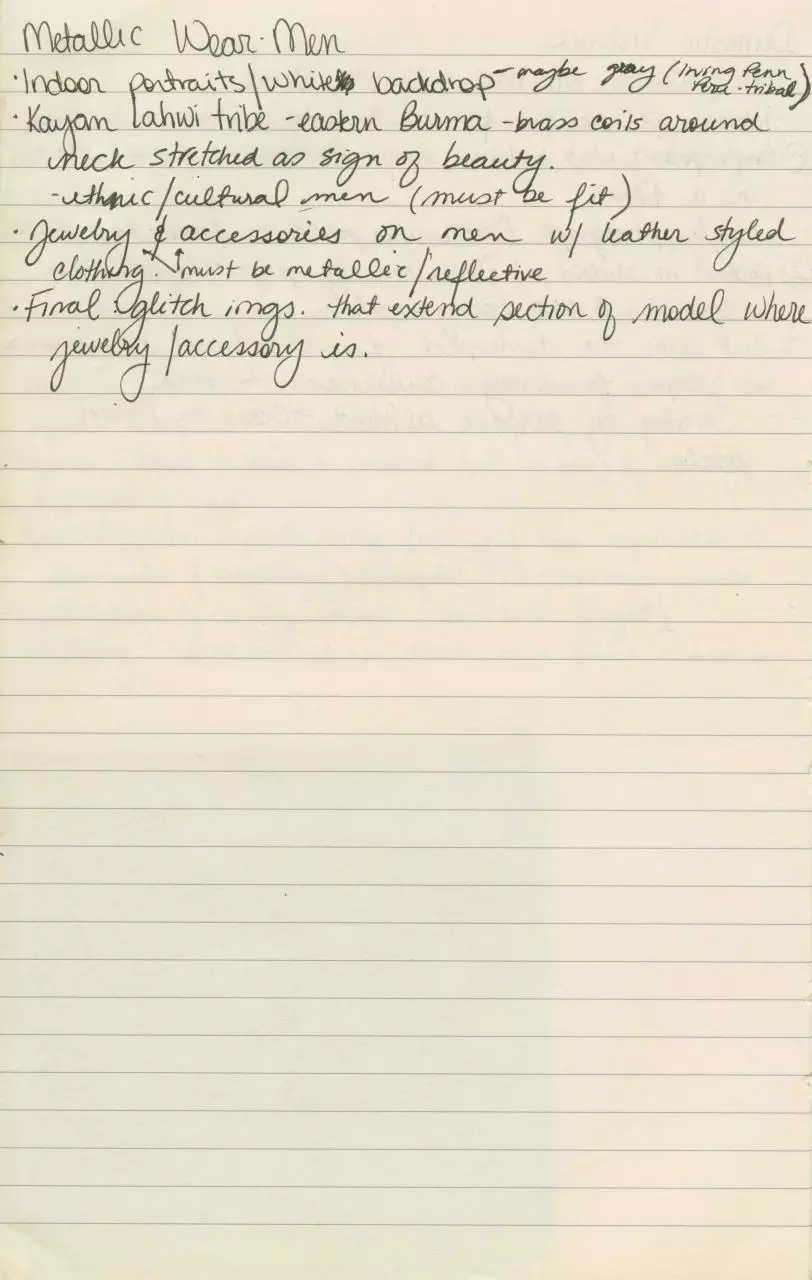 Metallic Wear-Men
· Indoor portraits/white backdrop - maybe gray (Irving Penn
Peru-tribal)
· Kayan Lahwi tribe - eastern Burma - brass coils around
neck stretched as sign of beauty.
- ethnic/cultural men (must be fit)
· Jewelry & accessories on men w/ leather styled
clothing. ↑must be metallic/reflective
· Final glitch imgs. that extend section of model where
jewelry/accessory is.